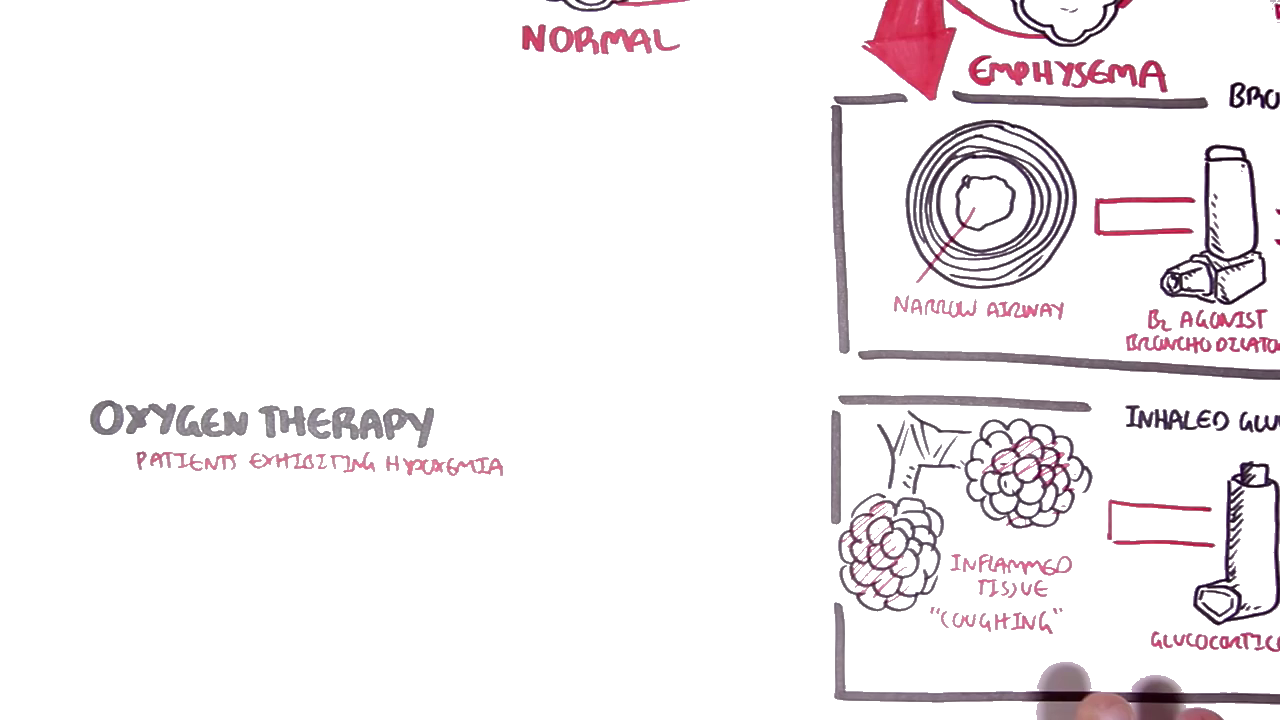 NORMAL
EMPHYSEMA
BRO
NARROW AIRWAY
B2 AGONIST
BRONCHODILATO
OXYGEN THERAPY
PATIENTS EXHIBITING HYPOXEMIA
INHALED GLU
INFLAMMED
TISSUE
"COUGHING"
GLUCOCORTIC